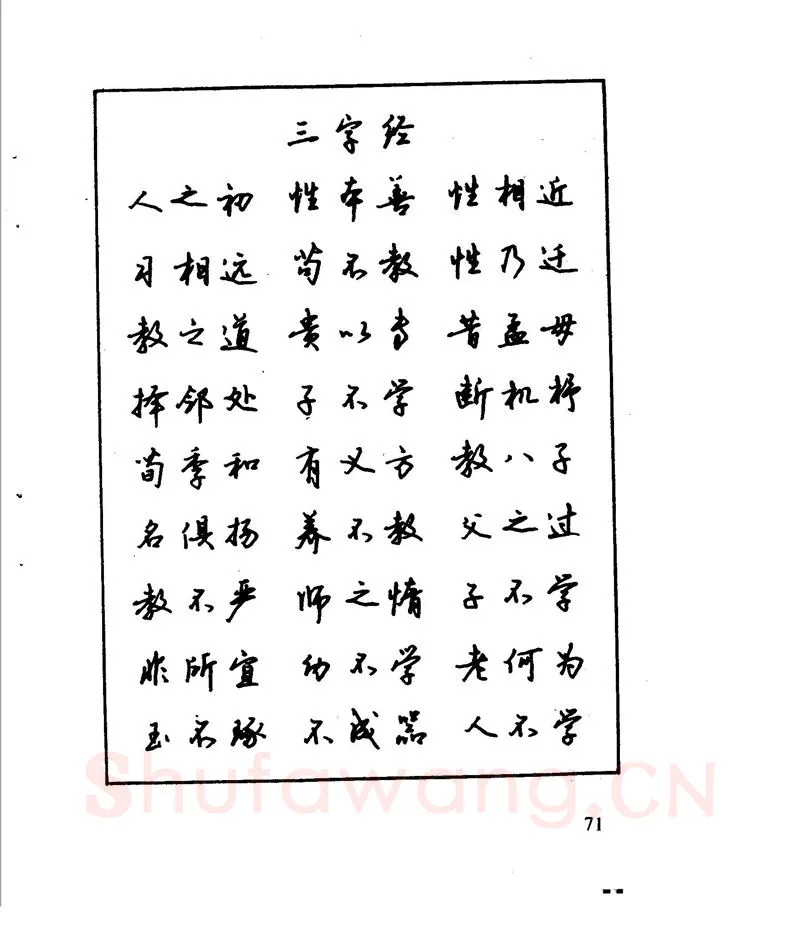 三字经
人之初 性本善 性相近
习相远 苟不教 性乃迁
教之道 贵以专 昔孟母
择邻处 子不学 断机杼
荀季和 有义方 教八子
名俱扬 养不教 父之过
教不严 师之惰 子不学
非所宜 幼不学 老何为
玉不琢 不成器 人不学
Shufawang.CN
71